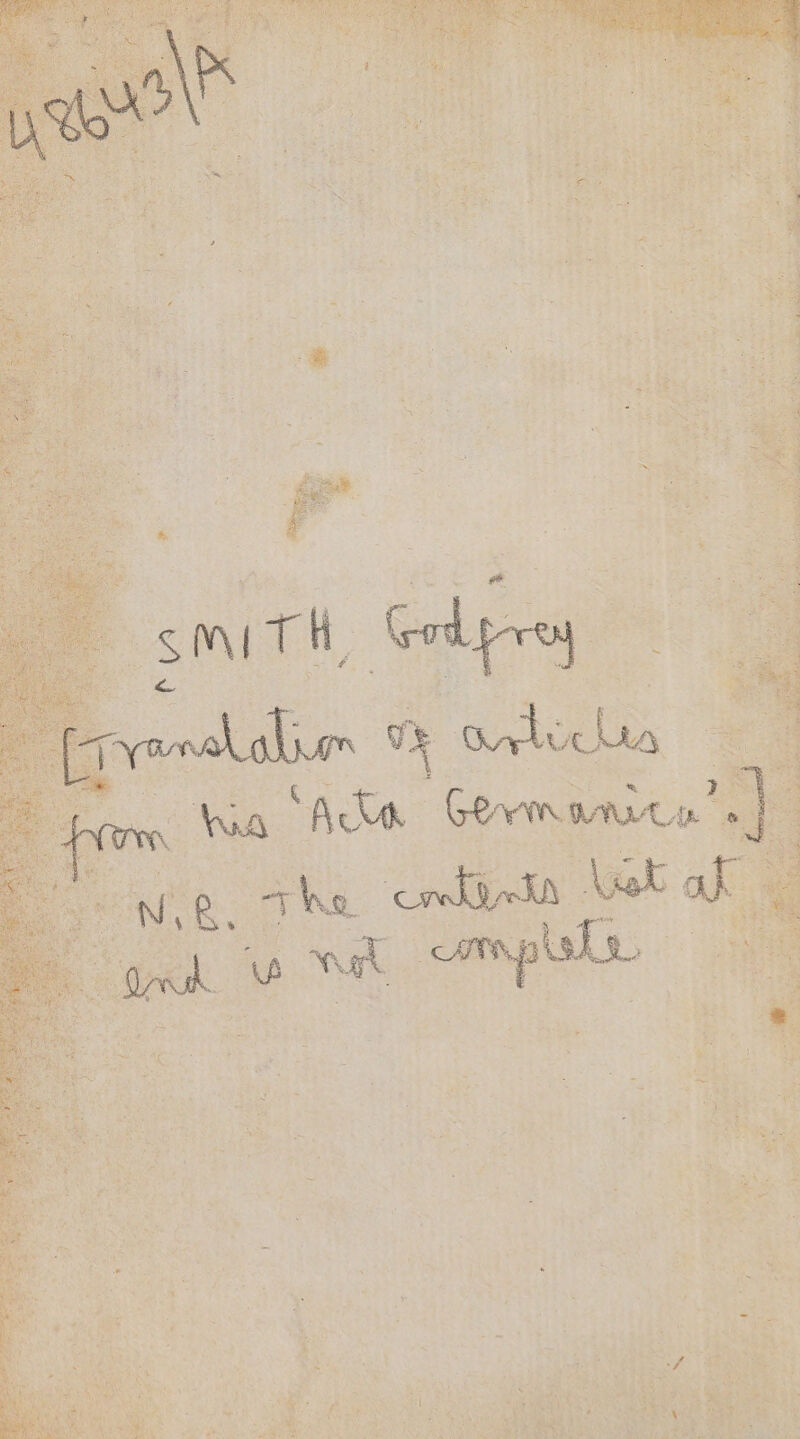 48643/A
SMITH, Godfrey
[Translation of articles
from his 'Acta Germanica'.]
N.B. The contents list at
end is not complete